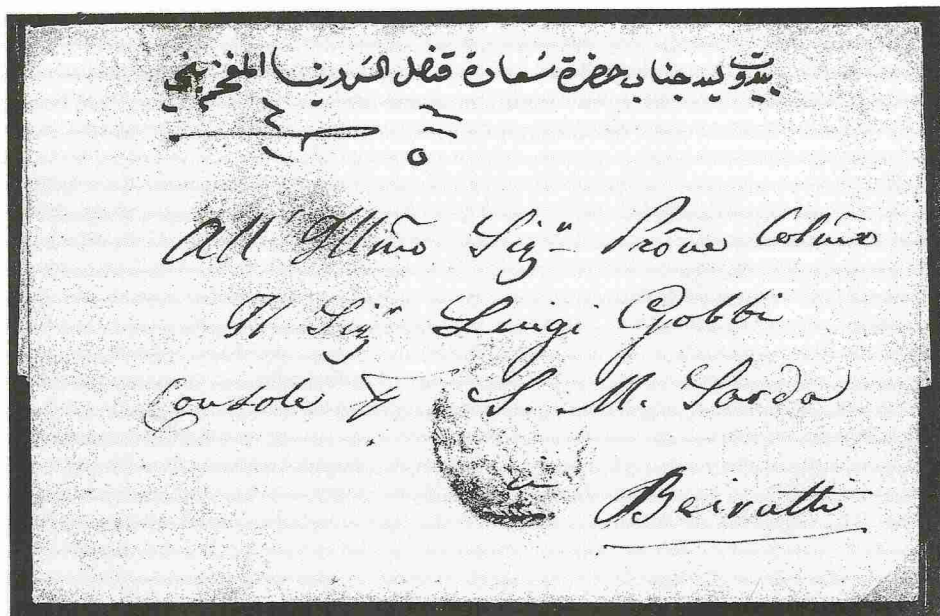 بيروت ليد جناب حضرة سعادة قنصل السردينيا المفخم
All' Illmo Sigr Prone Colmo
Il Sigr Luigi Gobbi
Console S. M. Sarda
a Beirutti